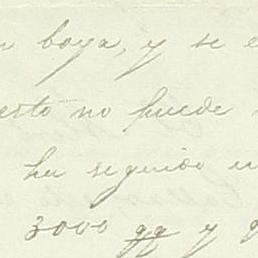 boya, y se
esto no puede
ha seguido
3000 qq y